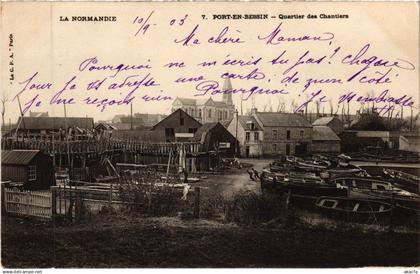 LA NORMANDIE
10/9 - 03
7. PORT-EN-BESSIN - Quartier des Chantiers
Ma chère Maman,
Pourquoi ne m'ecris tu pas? Chaque
jour je t'adresse une carte, et de mon coté
je ne reçois rien Pourquoi? Je t'embrasse
La C. P. A. - Paris